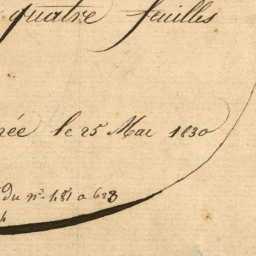 quatre feuilles
rée le 25 Mai 1830
du n° 481 a 628